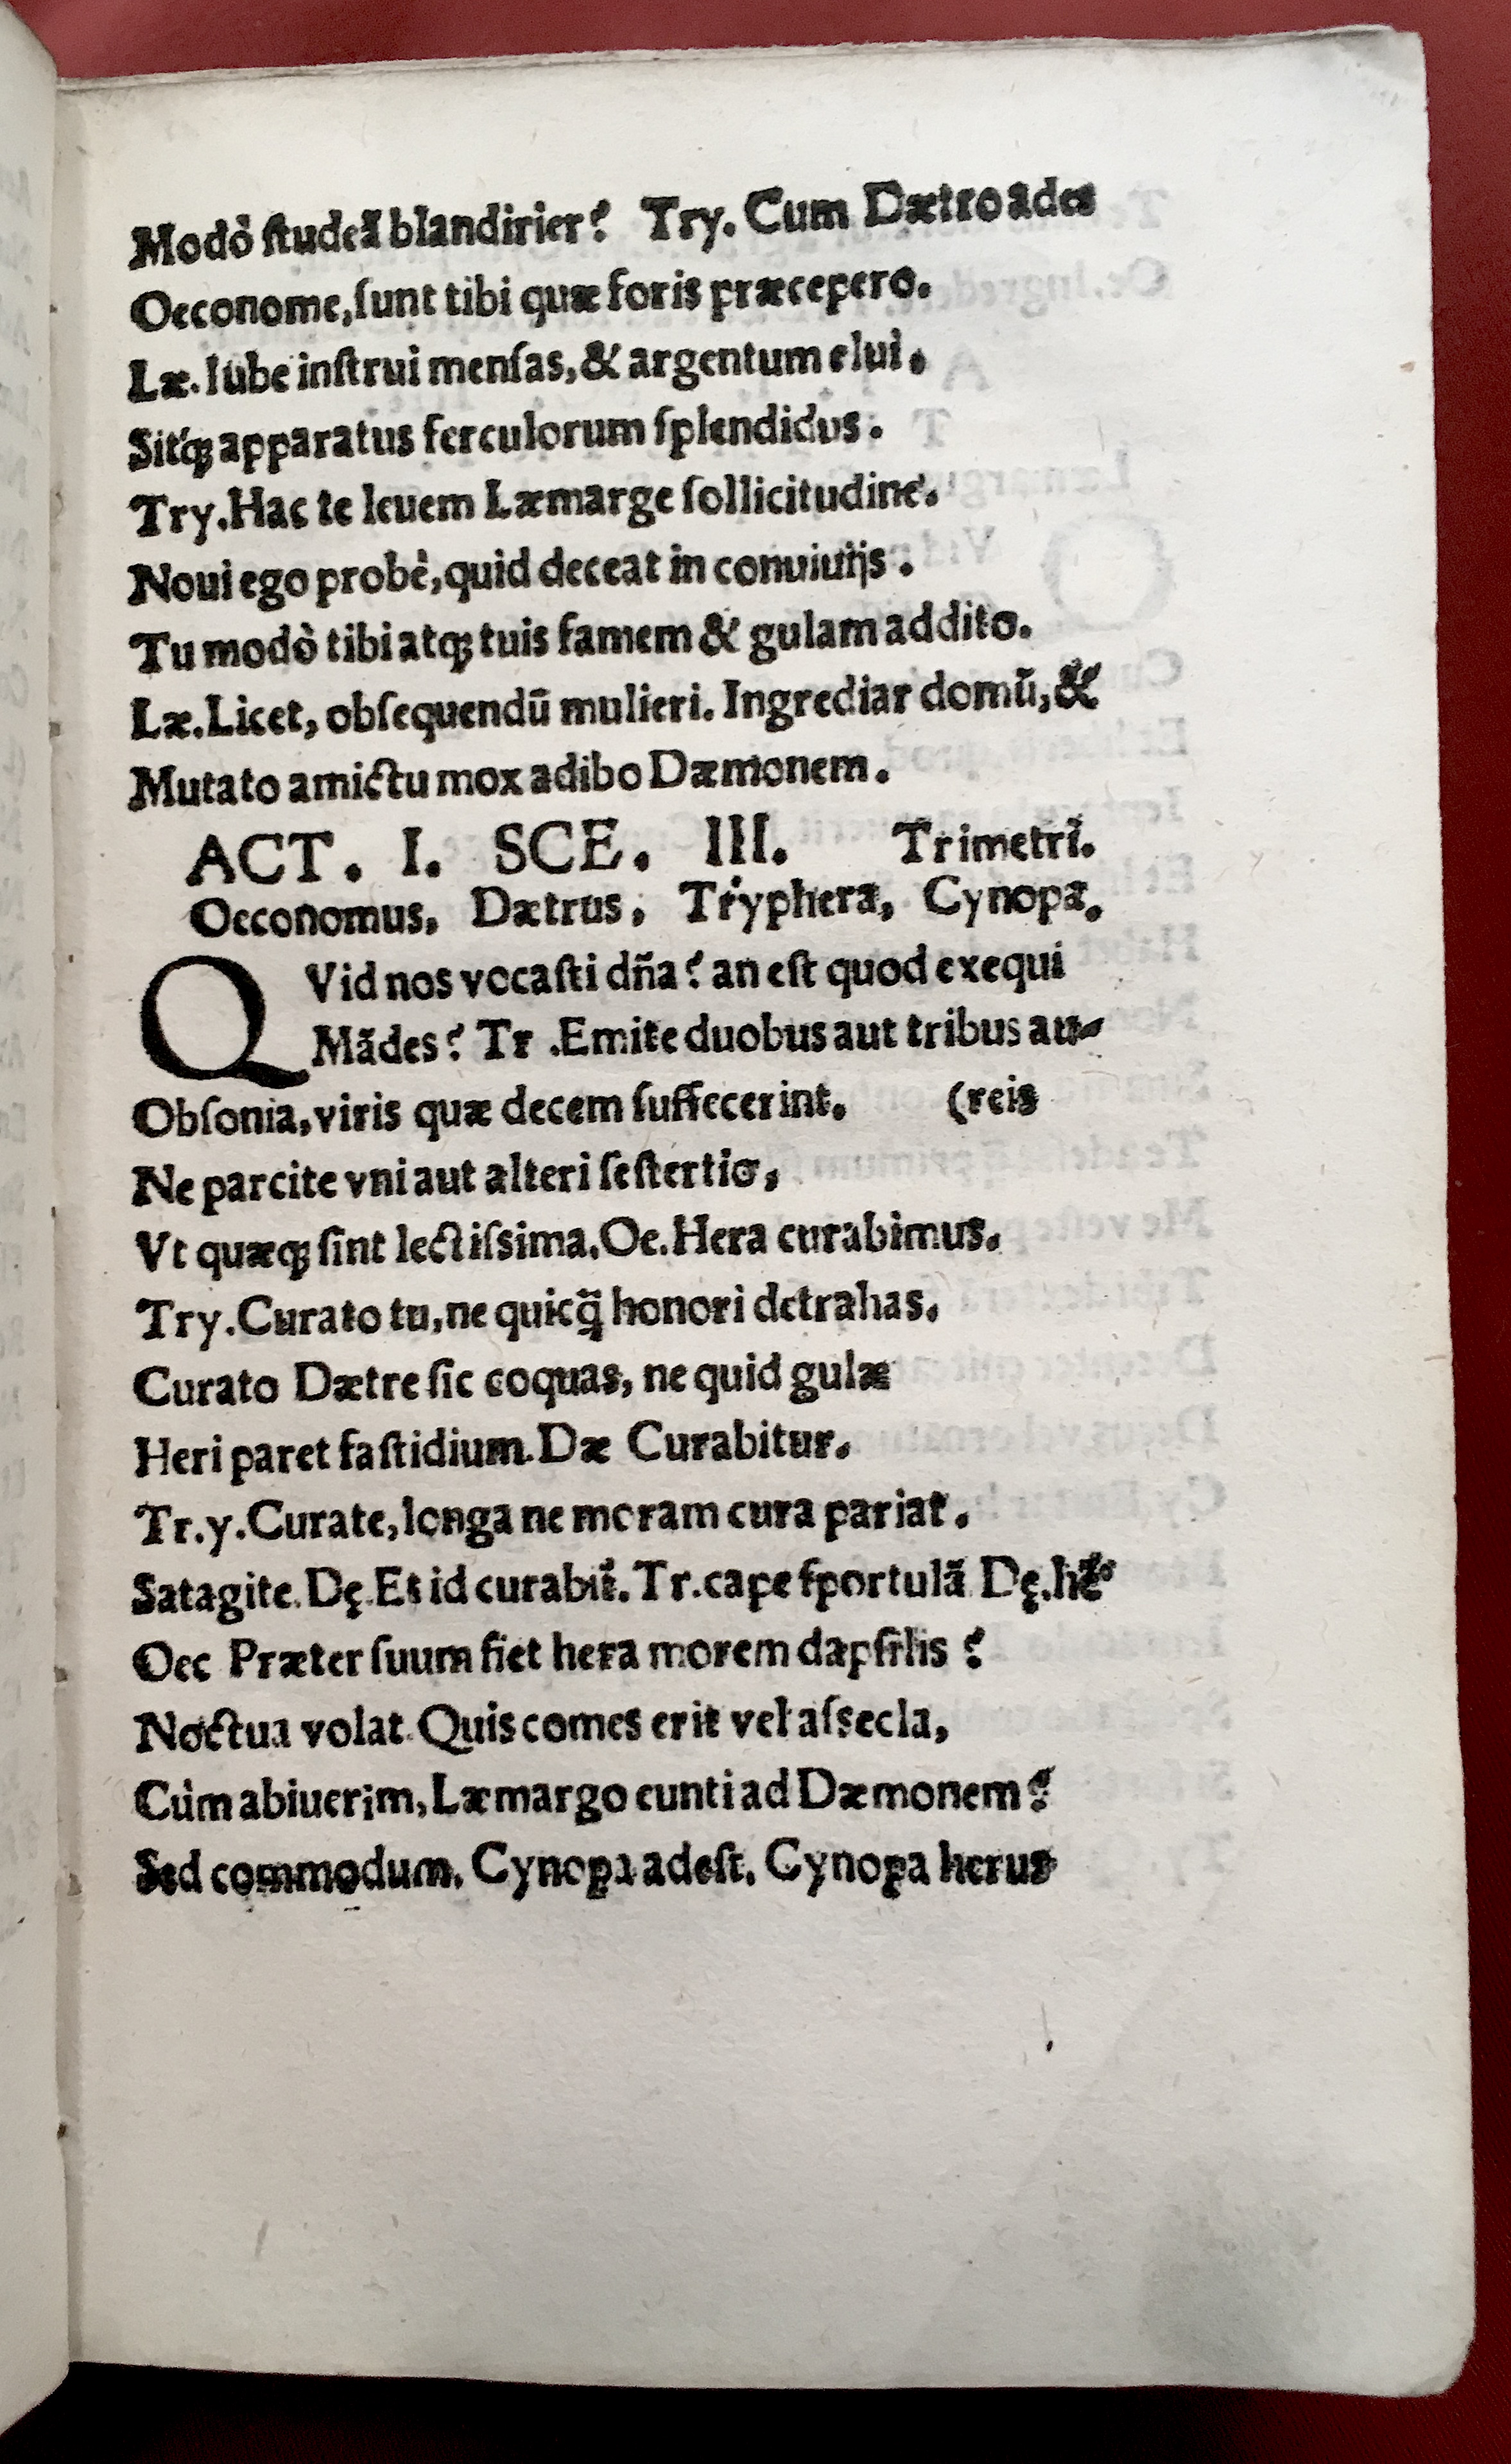 Modò ſtudeā blandirier? Try. Cum Dætro ades
Oeconome, ſunt tibi quæ foris præcepero.
Læ. Iube inſtrui menſas, & argentum elui.
Sitꝗ́ꝫ apparatus ferculorum ſplendidus.
Try. Hac te leuem Læmarge ſollicitudine.
Noui ego probè, quid deceat in conuiuijs.
Tu modò tibi atqꝫ tuis famem & gulam addito.
Læ. Licet, obſequendū mulieri. Ingrediar domū, &
Mutato amictu mox adibo Dæmonem.
ACT. I. SCE. III. Trimetri.
Oeconomus, Dætrus, Tryphera, Cynopa.
QVid nos vocaſti dn̄a? an eſt quod exequi
Mādes? Tr. Emite duobus aut tribus au-
Obſonia, viris quæ decem ſuffecerint. (reis
Ne parcite vni aut alteri ſeſtertio,
Vt quæqꝫ ſint lectiſsima. Oe. Hera curabimus.
Try. Curato tu, ne quicq̄ honori detrahas.
Curato Dætre ſic coquas, ne quid gulæ
Heri paret faſtidium. Dæ Curabitur.
Tr.y. Curate, longa ne moram cura pariat.
Satagite. Dę. Et id curabit̄. Tr. cape ſportulā Dę.
Oec Præter ſuum fiet hera morem dapſilis?
Noctua volat. Quis comes erit vel aſsecla,
Cùm abiuerim, Læmargo eunti ad Dæmonem?
Sed commodum. Cynopa adeſt. Cynopa herus